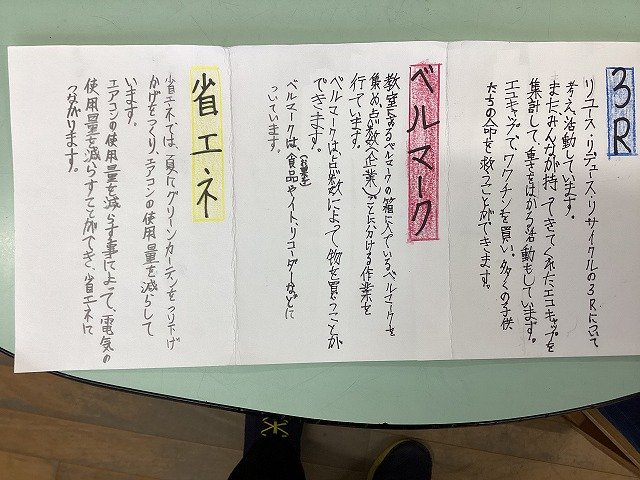 3R
リユース・リデュース・リサイクルの3Rについて
考え、活動しています。
またみんなが持ってきてくれたエコキャップを
集計して、重さをはかる活動もしています。
エコキャップで、ワクチンを買い、多くの子供
たちの命を救うことができます。
ベルマーク
教室にあるベルマークの箱に入っているベルマークを
集め、点数(企業)ごとに分ける作業を
行っています。
ベルマークは点数によって物を買うことが
できます。
ベルマークは、食品(お菓子)やノート、リコーダーなどに
ついています。
省エネ
省エネでは、夏にグリーンカーテンをつり下げ
かげをつくり、エアコンの使用量を減らして
います。
エアコンの使用量を減らす事によって、電気の
使用量を減らすことができ、省エネに
つながります。